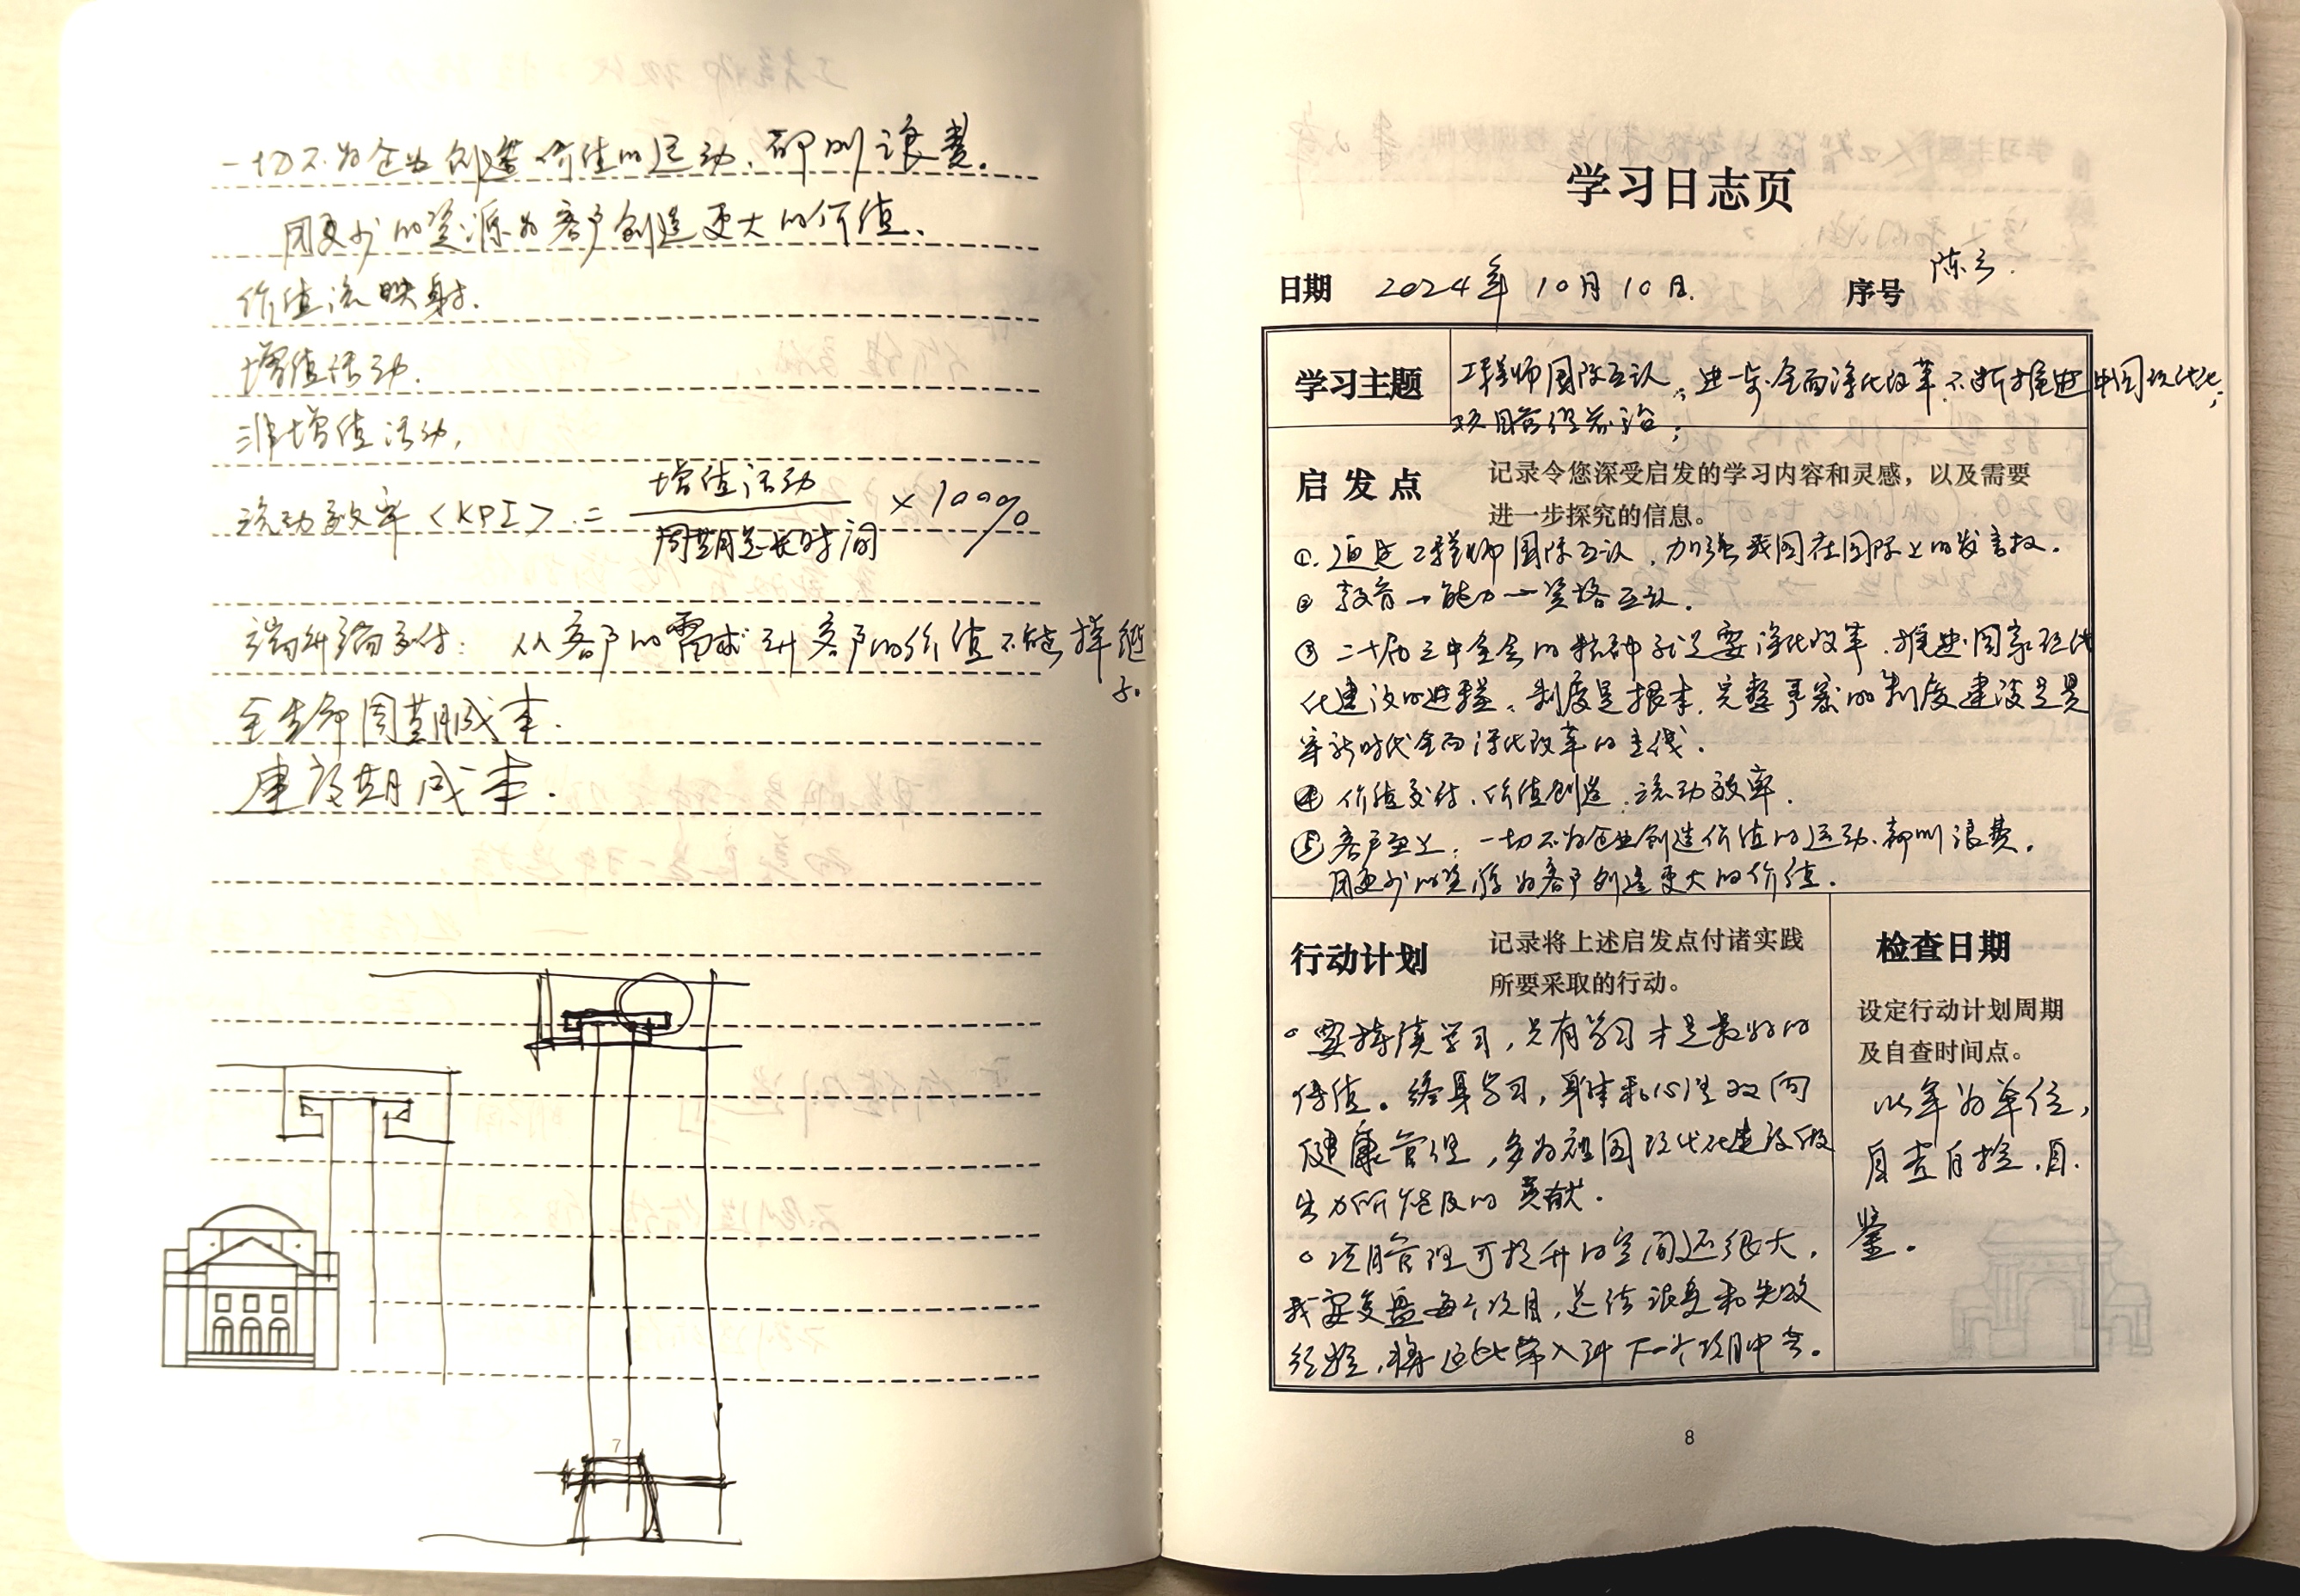 一切不为企业创造价值的运动，都叫浪费。
用更少的资源为客户创造更大的价值。
价值流映射.
增值活动.
非增值活动,
流动效率<KPI> = 增值活动 / 周期总长时间 × 100%
端到端交付: 从客户的需求到客户的价值不能掉链
子。
全生命周期成本.
建设期成本.
7
学习日志页
日期 2024年10月10日. 序号 陈云.
学习主题 工程师国际互认; 进一步全面深化改革、不断推进中国现代化;
项目管理总论;
启发点 记录令您深受启发的学习内容和灵感，以及需要
进一步探究的信息。
①. 通过工程师国际互认，加强我国在国际上的发言权.
② 教育→能力→资格互认.
③ 二十届三中全会的精神就是要深化改革，推进国家现代
化建设的进程。制度是根本，完整严密的制度建设是是
新时代全面深化改革的主线.
④ 价值交付、价值创造、流动效率.
⑤ 客户至上: 一切不为企业创造价值的运动、都叫浪费.
用更少的资源为客户创造更大的价值.
行动计划 记录将上述启发点付诸实践
所要采取的行动。
○ 要持续学习，只有学习才是最好的
保值。终身学习，身体和心理双向
健康管理，多为祖国现代化建设做
出力所能及的贡献.
○ 项目管理可提升的空间还很大，
我要复盘每个项目，总结 和失败
经验，将这些带入到下一个项目中去。
检查日期
设定行动计划周期
及自查时间点。
以年为单位，
自查自检，自
鉴。
8